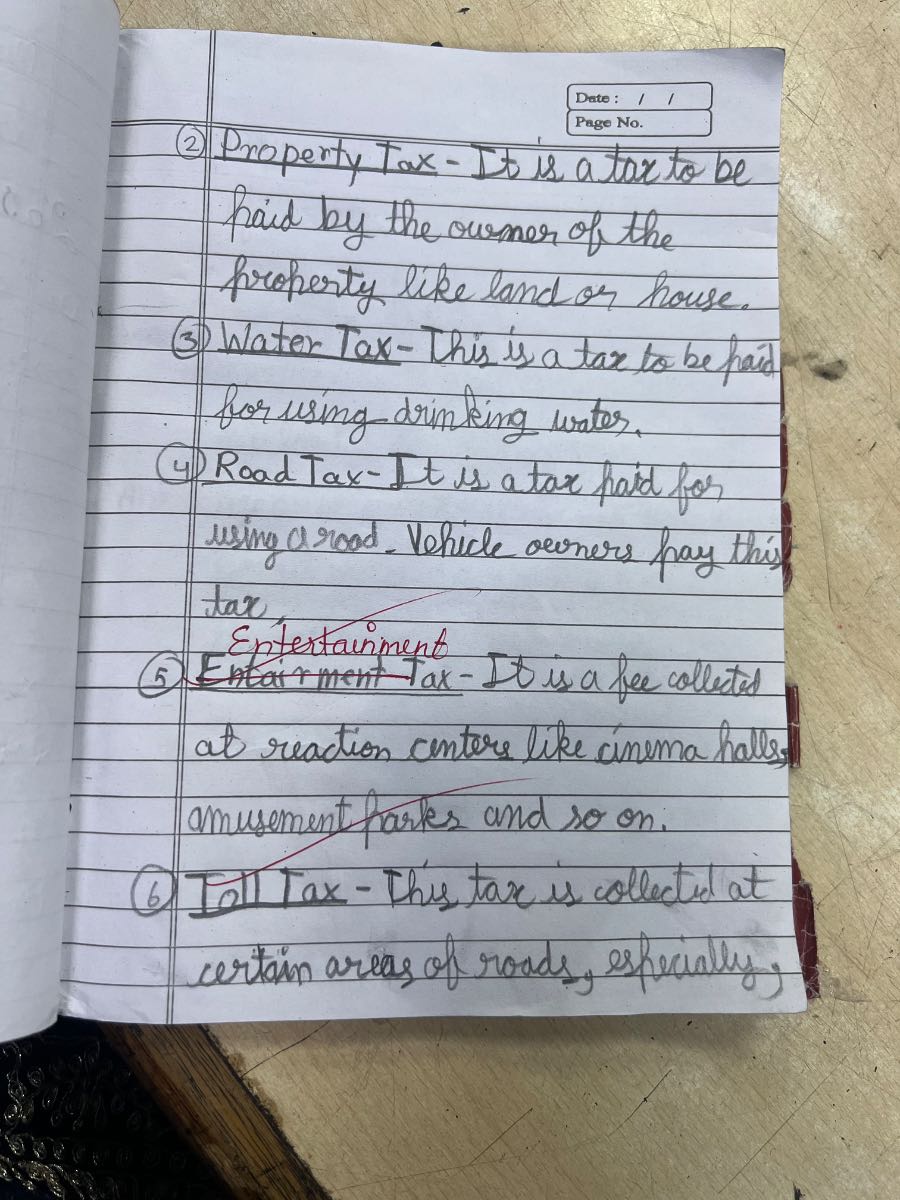 Date : / /
Page No.
② Property Tax - It is a tax to be
paid by the owner of the
property like land or house.
③ Water Tax - This is a tax to be paid
for using drinking water.
④ Road Tax - It is a tax paid for
using a road. Vehicle owners pay this
tax.
Entertainment
⑤ Entairment Tax - It is a fee collected
at reaction centers like cinema halls,
amusement parks and so on.
⑥ Toll Tax - This tax is collected at
certain areas of roads, especially,